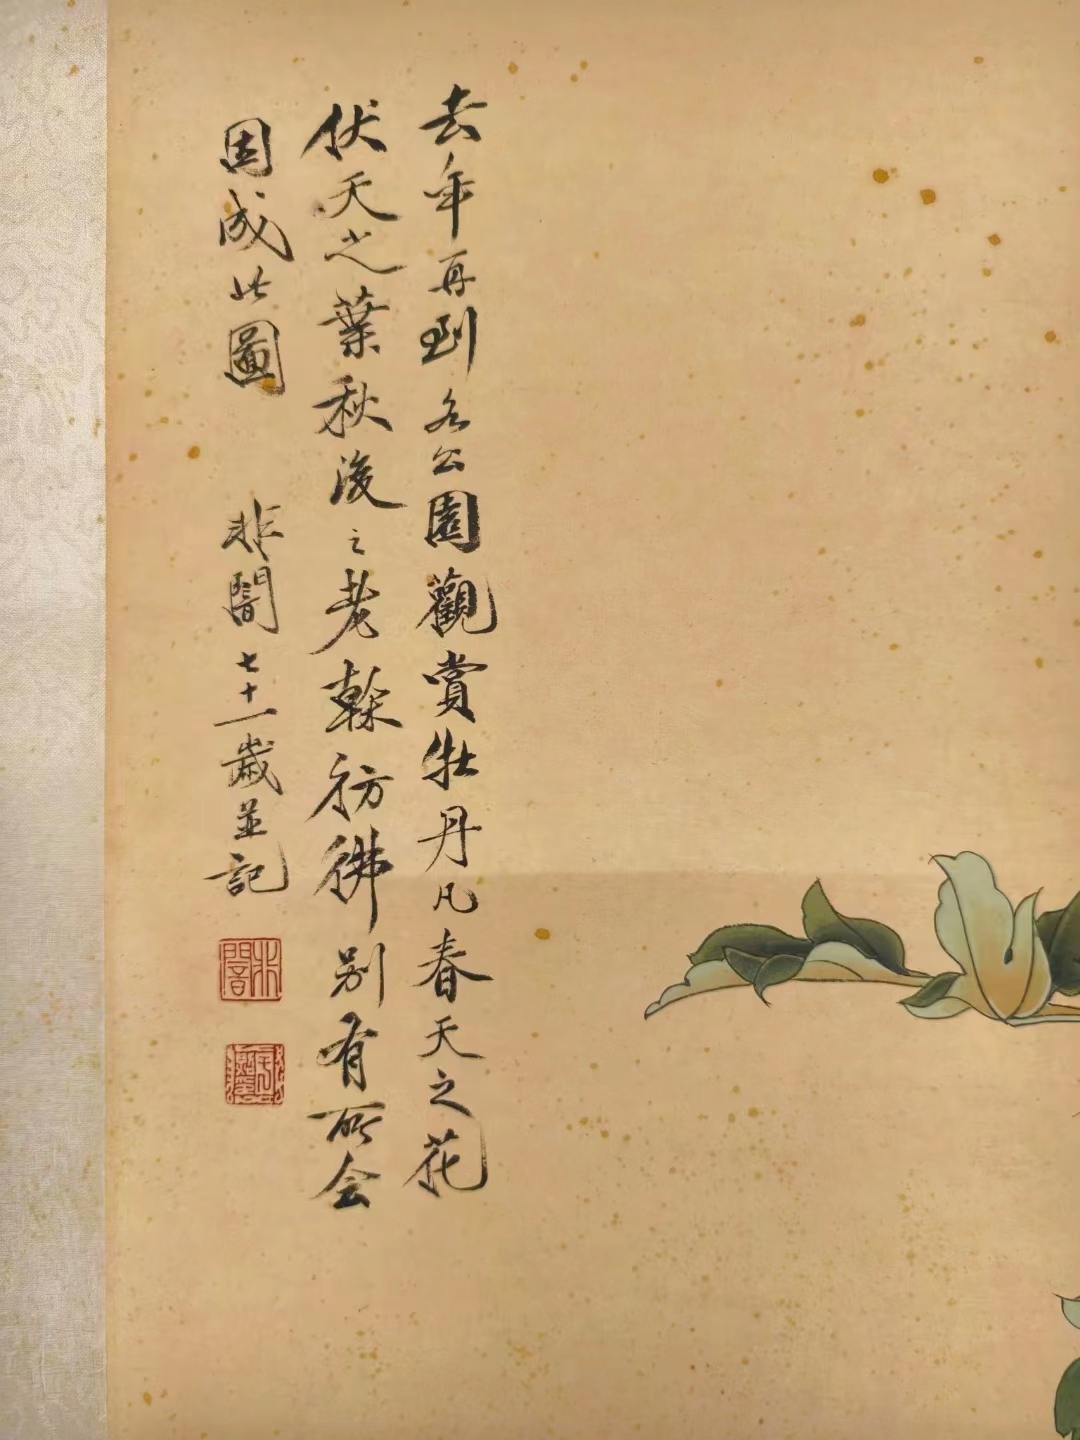 去年再到各公園觀賞牡丹凡春天之花
伏天之葉秋後之老榦彷彿別有所会
因成此圖
非闇七十一歲並記
非闇